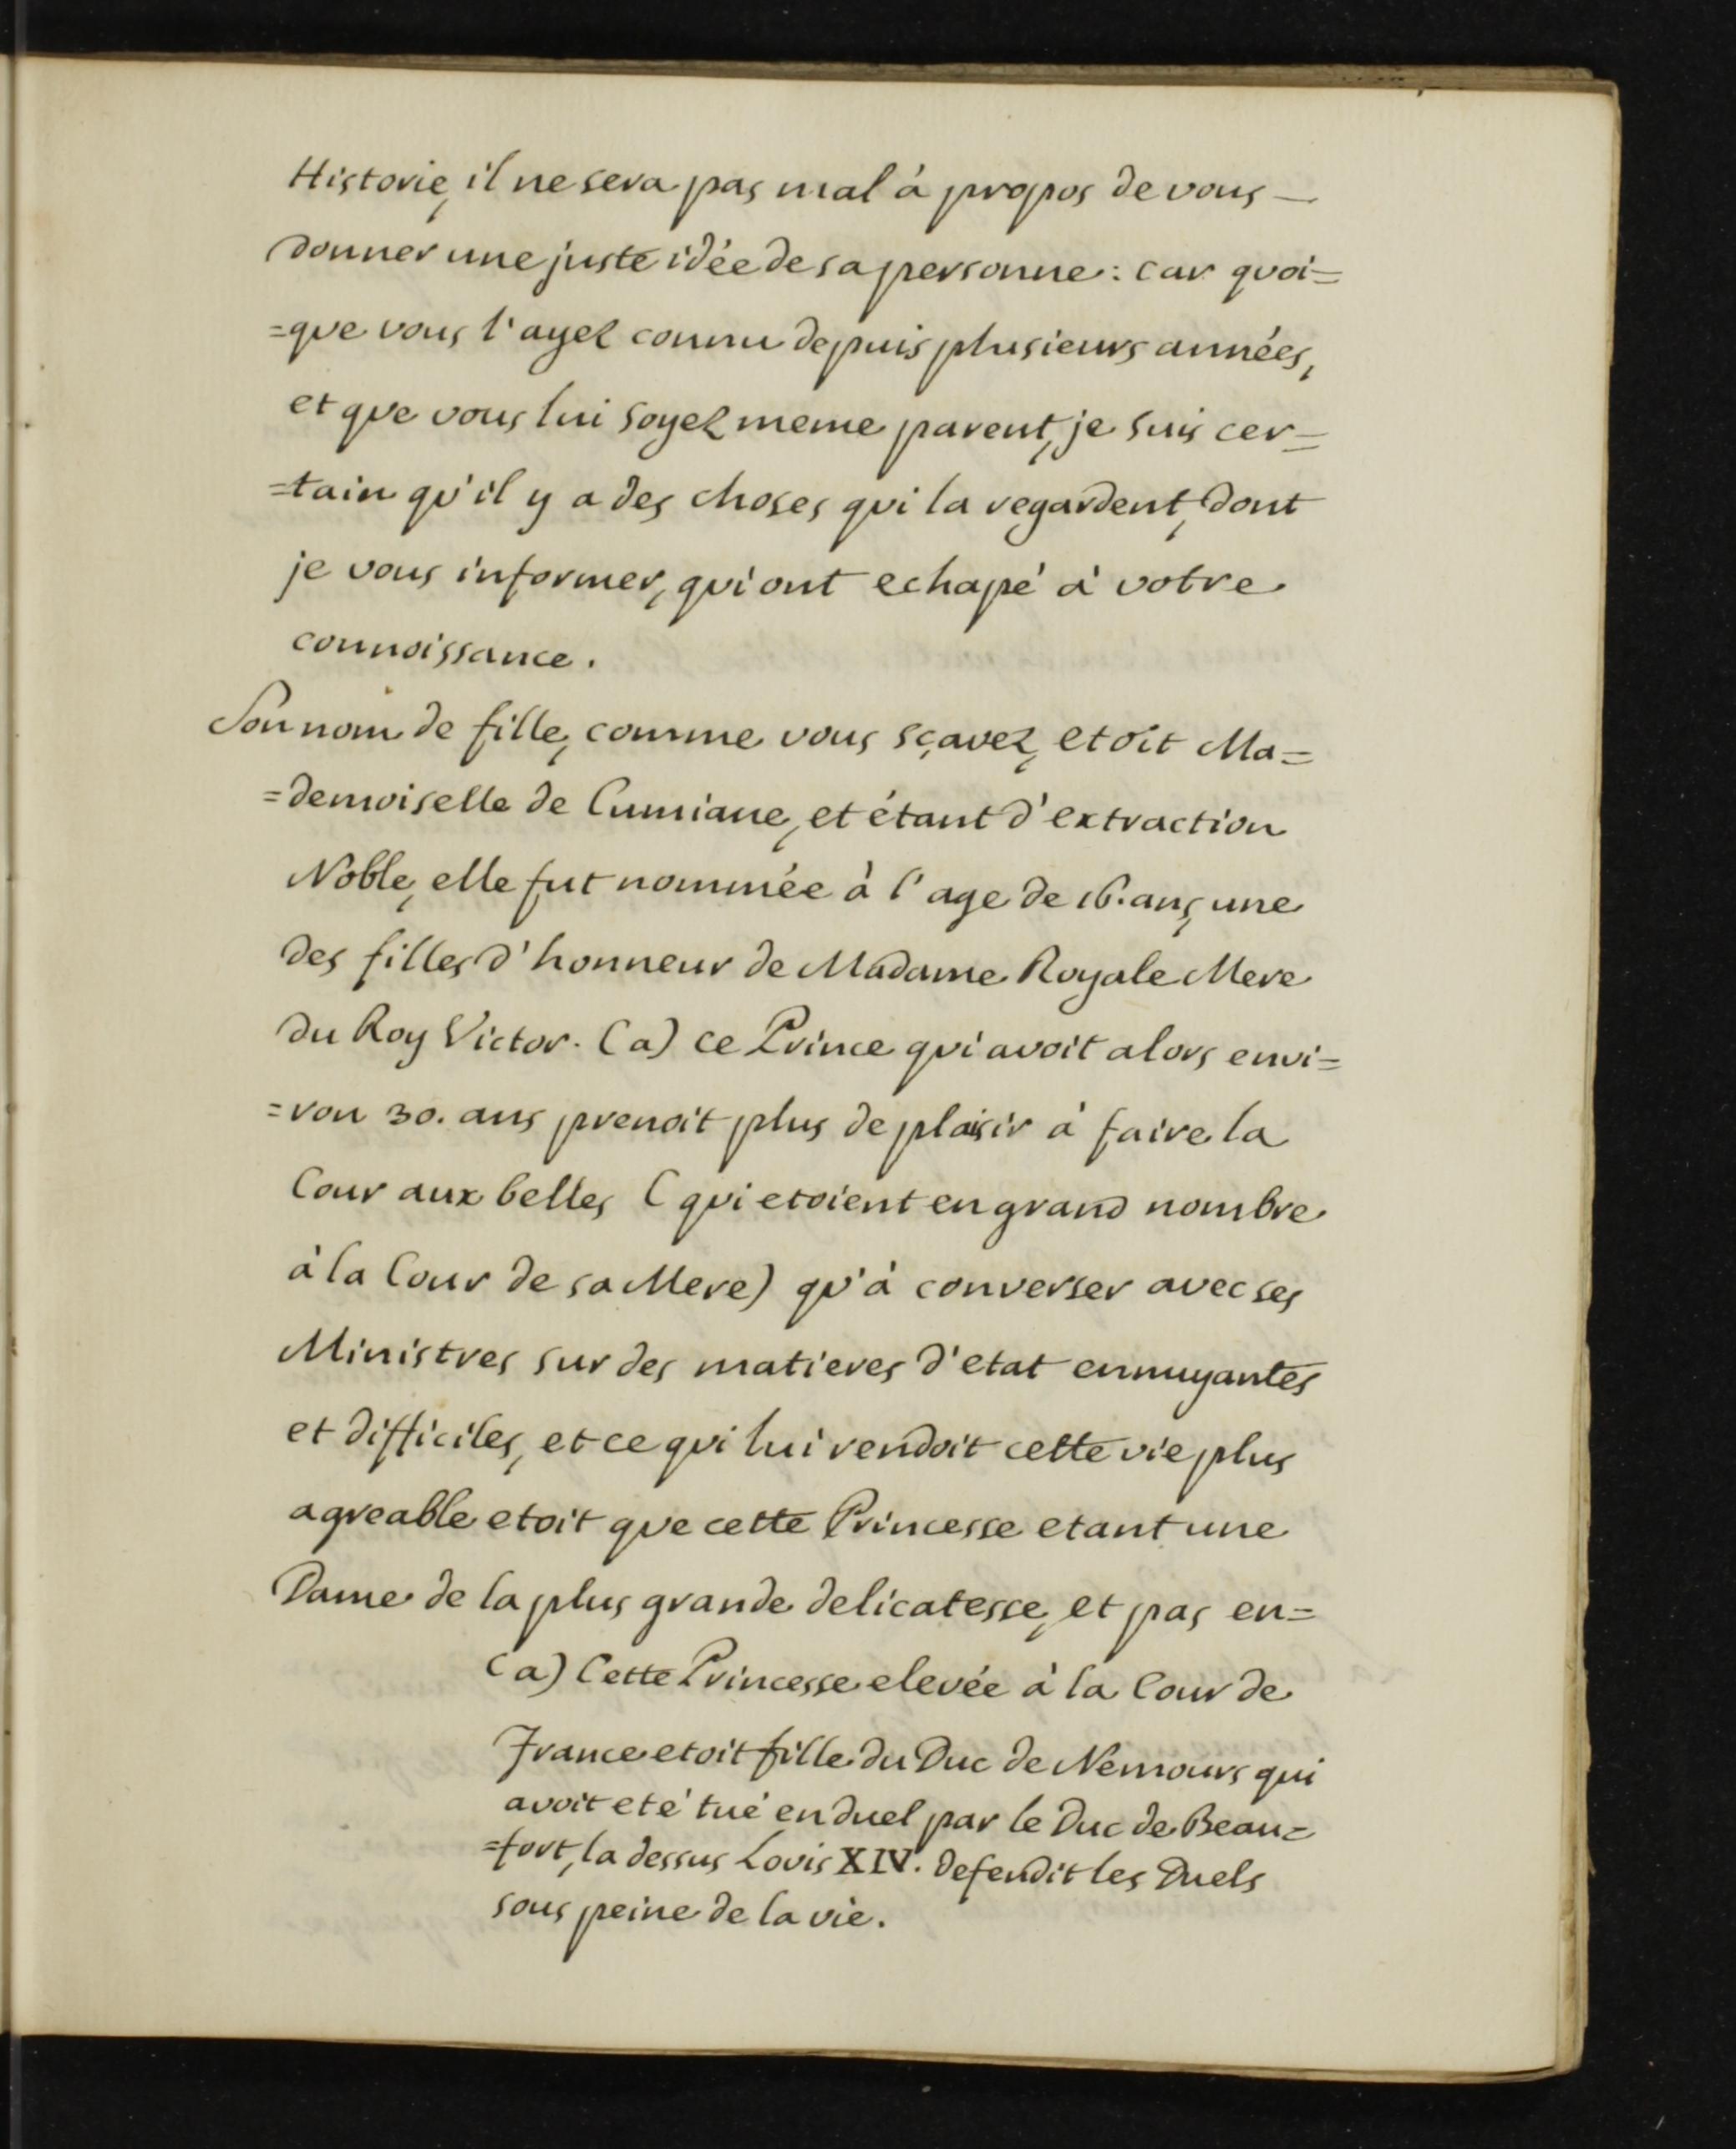 Historie, il ne sera pas mal à propos de vous —
donner une juste idée de sa personne: car quoi=
=que vous l'ayez connu depuis plusieurs années,
et que vous lui soyez meme parent, je suis cer=
=tain qu'il y a des choses qui la regardent, dont
je vous informer, qui ont echapé à votre
connoissance.
Son nom de fille, comme vous sçavez, etoit Ma=
=demoiselle de Cumiane, et étant d'extraction
Noble, elle fut nommée à l'age de 16. ans, une
des filles d'honneur de Madame Royale Mere
du Roy Victor. (a) ce Prince qui avoit alors envi=
=ron 30. ans prenoit plus de plaisir à faire la
Cour aux belles (qui etoient en grand nombre
à la Cour de sa Mere) qu'à converser avec ses
Ministres sur des matieres d'etat ennuyantes
et difficiles, et ce qui lui rendoit cette vie plus
agreable etoit que cette Princesse etant une
Dame de la plus grande delicatesse, et pas en=
(a) Cette Princesse elevée à la Cour de
France etoit fille du Duc de Nemours qui
avoit eté tué en duel par le Duc de Beau=
=fort, la dessus Lovis XIV. defendit les Duels
sous peine de la vie.